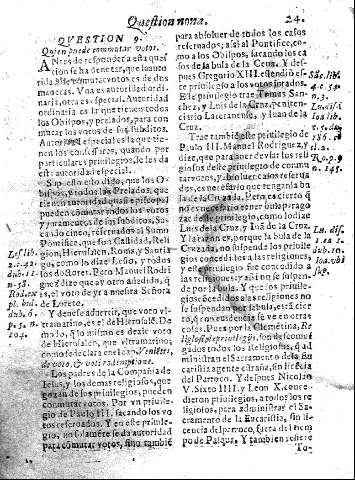 Question nona. 24.
QUESTION 9.
Quien puede commutar votos.
ANtes de responder a esta question
se ha de notar, que la autoridad
de commutar votos es de dos
maneras. Vna es autoridad ordinaria,
otra es especial. Autoridad
ordinaria es la que tienen todos
los Obispos, y Prelados, para commutar
los votos de sus subditos.
Autoridad especial es la que tienen
los confessores, quando por
particulares privilegios, se les da
esta autoridad especial.
Supuesto esto digo, que los Obispos,
y todos los Prelados, que
tienen autoridad quasi episcopal
pueden commutar todos los votos
y juramentos, de sus subditos, sacando
cinco, reservados al Sumo
Pontifice, que son Castidad, Religion,
Hierusalen, Roma, y Santiago,
como lo dize Lesio, y todos
los doctores. Pero Manuel Rodriguez
dize que ay otro añadido, q
es, el voto de yr a nuestra Señora
de Loreto.
Y denese advertir, que voto vltramarino,
es el de Hierusalē. De
modo, q lo mismo es dezir voto
de Hierusalen, que vltramarino;
como se declara en el cap.
de voto, & voti redemptione.
Los padres de la Compañia de
Iesus, y los demas religiosos, que
gozan de sus privilegios, pueden
commutar votos. Por vn privilegio
de Paulo III. sacando los votos
reservados. Y en este privilegio,
no solamẽte se da autoridad
para cõmutar votos, sino tambiẽ
Les. lib.
2. c. 42.
dub. 11.
n. 58.
Rodrez.
de Loreto.
dub. 6.
104.
para absoluer de todos los casos
reservados, assi al Pontifice, como
a los Obispos, sacando los casos
de la bula de la Cena. Y despues
Gregorio XIII. estendió este
privilegio a los votos jurados.
Este privilegio trae Tomas Sanchez,
y Luis de la Cruz, penitenciario
Lateranense, y Iuan de la
Cruz.
Trae tambien este privilegio de
Paulo III. Manuel Rodriguez, y
dize, que para aver de vsar los religiosos
deste privilegio de commutar
votos, y absoluer casos reservados,
es necesario que tengan la bula
de la Cruzada. Pero es cierto que
no es necesario tener bula para gozar
de este privilegio, como lo dizẽ
Luis de la Cruz, y Iuã de la Cruz.
Y la razon es, porque la bula de
la Cruzada, no suspende los privilegios
concedidos a las religiones,
y este privilegio fue concedido a
las religiones, y assi no se suspende
por la bula. Y que los privilegios
cõcedidos a las religiones no
se suspendan por bulas, está cierto,
q con evidencia se ve en otras
cosas. Pues por la Clementina, Religiosi
de privilegiis, son descomulgados
todos los Religiosos, q administran
el Sacramento de la Eucaristia
agente estraña, sin licencia
del Parroco. Y despues Nicolao
V. Sixto IIII. y Leon X. concedieron
privilegios, a todos los religiosos,
para administrar el Sacramento
de la Eucaristia, sin licencia
del parroco, fuera del tiempo
de Pascua. Y tambien se
To-
Sãc. lib.
4. c. 54.
n. 3.
Lu. disl
1. n. 9
n. 145.
Lu. dis.
1. ca 1.
dub. 10.
Ioã. vbi
sup.